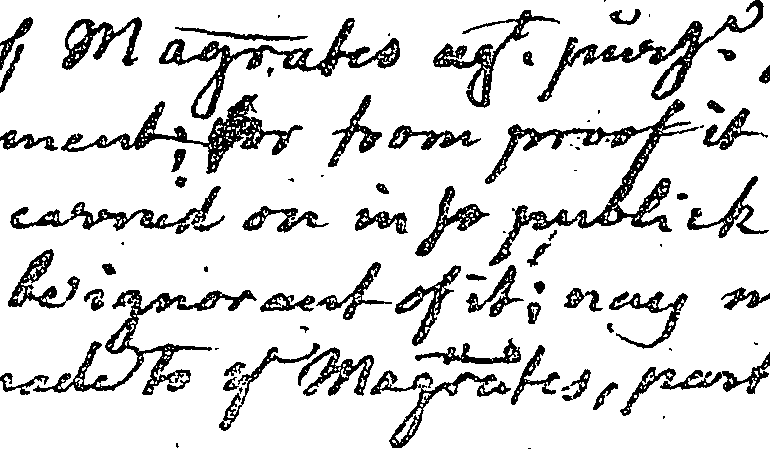 Magrates agt. pursr.
ment; for from proof it
carried on in so publick
be ignorant of it; nay m
made to ye Magrates, part